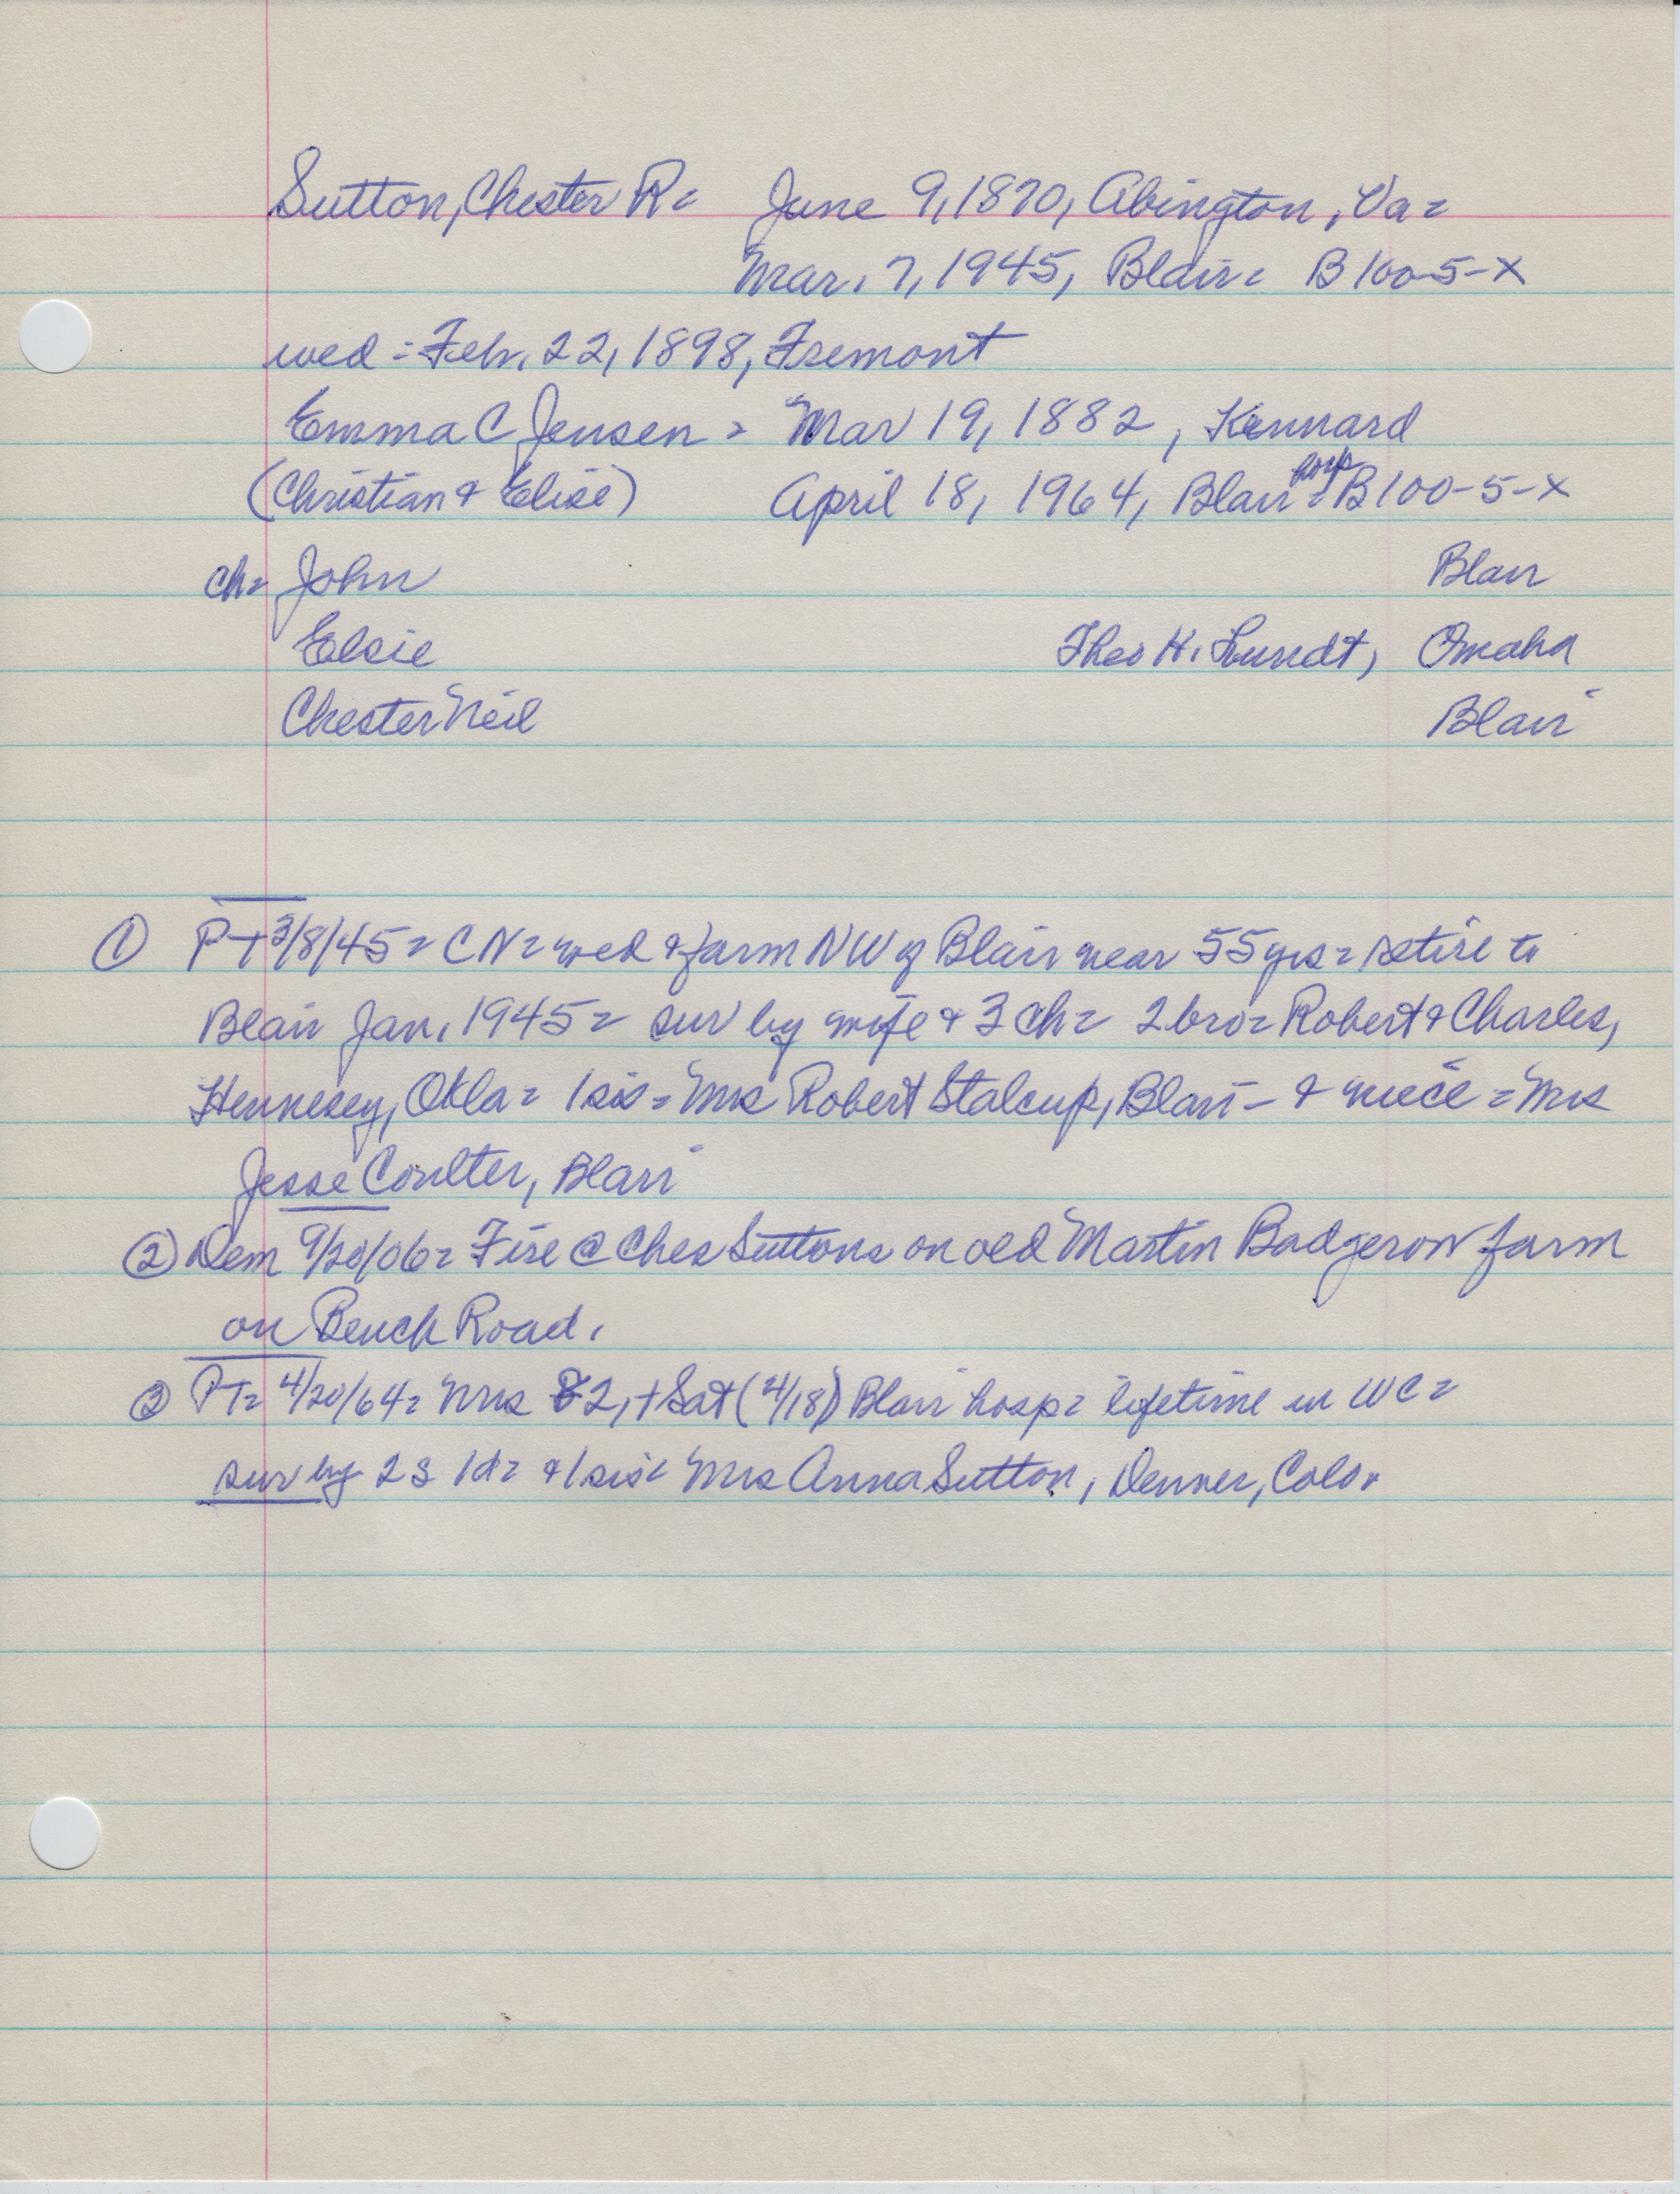 Sutton, Chester R= June 9, 1870, Abington, Va=
Mar. 7, 1945, Blair= B100-5-X
wed = Feb. 22, 1898, Fremont
Emma C Jensen = Mar 19, 1882, Kennard
(Christian & Elise) April 18, 1964, Blair hosp = B100-5-X
ch= John Blair
Elsie Theo H. Lundt, Omaha
Chester Neil Blair
① PT 3/8/45= CN= wed & farm NW of Blair near 55 yrs= retire to
Blair Jan. 1945= sur by wife & 3 ch= 2 bro= Robert & Charles,
Hennesey, Okla= 1 sis= Mrs Robert Stalcup, Blair - & niece = Mrs
Jesse Coulter, Blair
② Dem 9/20/06= Fire @ Ches Suttons on old Martin Badgerow farm
on Bench Road.
③ PT= 4/20/64= Mrs 82, + Sat (4/18) Blair hosp= lifetime in WC=
sur by 2 s 1 d= & 1 sis= Mrs Anna Sutton, Denver, Colo.